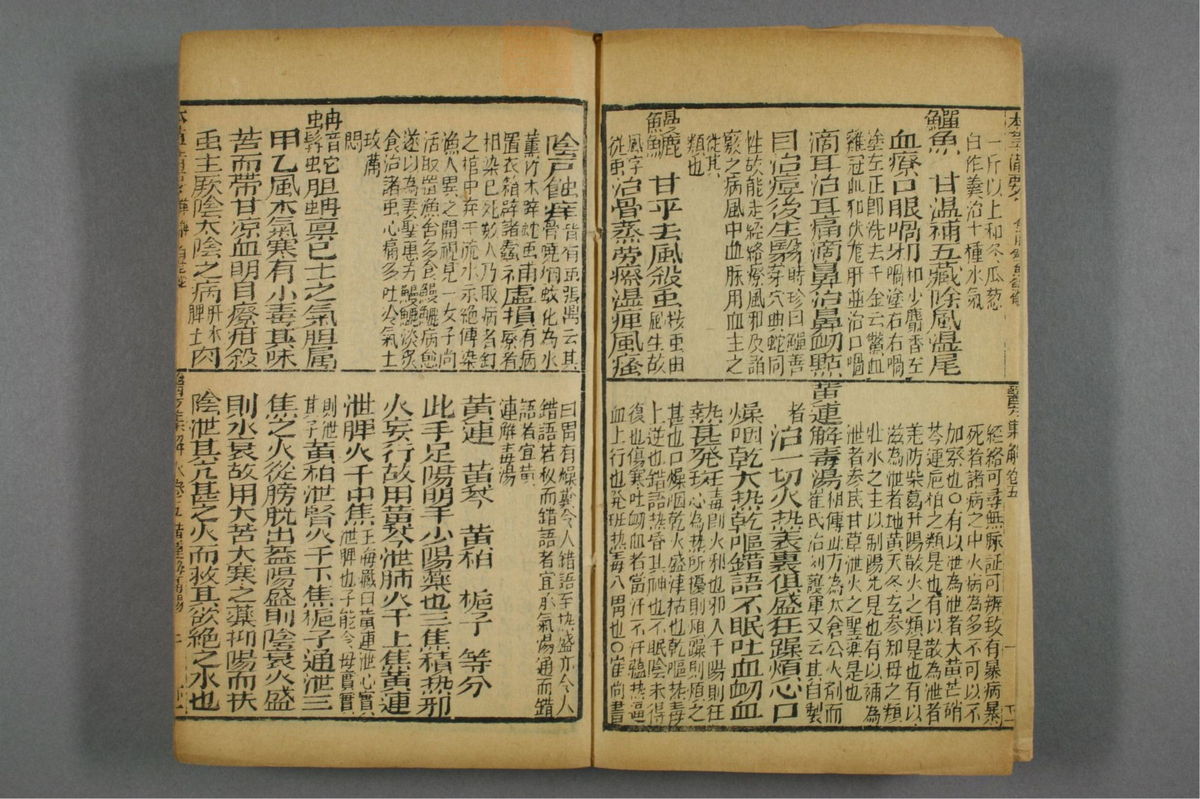 一斤以上和冬瓜葱
白作羹治十種水氣
鱓魚 甘溫補五臟除風溼尾
血療口眼喎斜和少麝香左喎塗右右喎
塗左正即洗去千金云鱉血
雞冠血和伏龍肝並治口喎
滴耳治耳痛滴鼻治鼻衄點
目治痘後生翳時珍曰鱓善穿穴與蛇同
性故能走經絡療風邪及諸
竅之病風中血脉用血主之
從其
類也
鰻鱺 甘平去風殺虫按虫由風生故
風字從虫治骨蒸勞瘵溼痺風瘙
經絡可尋無脉証可辨致有暴病暴
死者諸病之中火病為多不可以不
加察也○有以瀉為泄者大黃芒硝
芩連梔柏之類是也有以散為泄者
羌防柴葛升陽散火之類是也有以
滋為泄者地黃天冬玄參知母之類
壯水之主以制陽光是也有以補為
泄者參芪甘草泄火之聖藥是也
黃連解毒湯相傳此方為太倉公火劑而
崔氏治劉護軍又云其自製
者治一切火熱表裏俱盛狂躁煩心口
燥咽乾大熱乾嘔錯語不眠吐血衄血
熱甚發斑毒即火邪也邪入于陽則狂
熱也心為熱所擾則煩躁則煩之
甚也口燥咽乾火盛津枯也乾嘔熱毒
上逆也錯語熱昏其神也不眠陰未得
復也傷寒吐衄血者當汗不汗蘊熱逼
血上行也發斑熱毒入胃也○崔尚書
陰戶蝕痒皆有虫張鼎云其骨燒烟蚊化為水
薰竹木辟蛀虫
置衣箱辟諸蠹補虛損有病瘵者
相染已死數人乃取病者釘
之棺中弃于流水示絕傳染
漁人異之開視見一女子尚
活取置漁舍多食鰻鱺病愈
遂以為妻聖惠方鰻鱺淡炙
食治諸虫心痛多吐冷氣土
攻滿
悶
蚺音
蛇胆蚺禀己土之氣胆属
甲乙風木氣寒有小毒其味
苦而帶甘凉血明目療疳殺
虫主厥陰太陰之病肝木脾土肉
曰胃有燥糞令人錯語至熱盛亦令人
錯語若秘而錯語者宜承氣湯通而錯
語者宜黃
連解毒湯
黃連 黃芩 黃柏 梔子 等分
此手足陽明手少陽藥也三焦積熱邪
火妄行故用黃芩泄肺火于上焦黃連
泄脾火于中焦王海藏曰黃連泄心實
泄脾也子能令母實實
則泄其子黃柏泄腎火于下焦梔子通泄三
焦之火從膀胱出蓋陽盛則陰衰火盛
則水衰故用大苦大寒之藥抑陽而扶
陰泄其亢甚之火而救其欲絕之水也